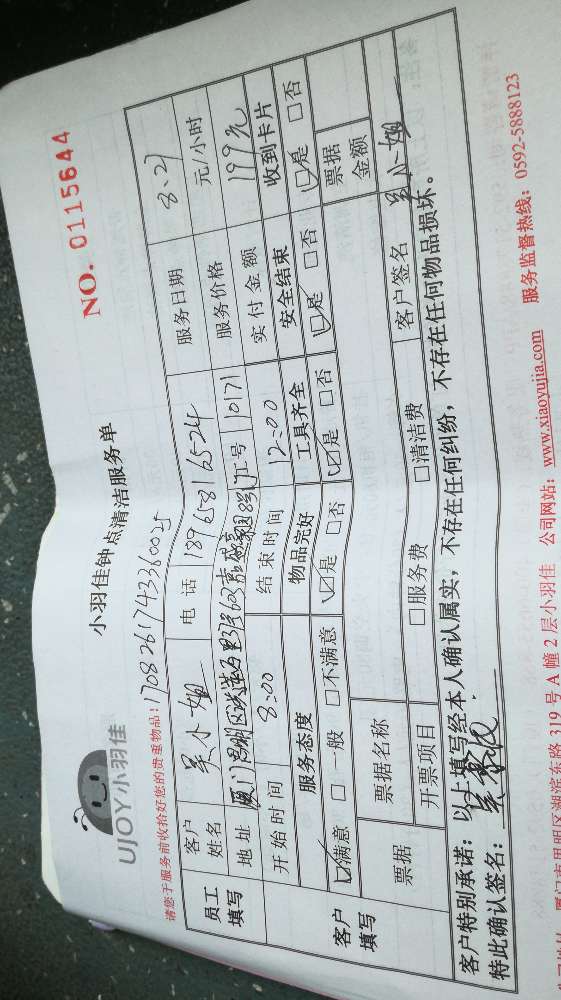 NO. 0115644
小羽佳钟点清洁服务单
UJOY小羽佳
请您于服务前收拾好您的贵重物品!
1708261743360025
员工填写
客户姓名 吴小姐 电话 18965816524 服务日期 8.27
地址 工号 10171 服务价格 元/小时
开始时间 8:00 结束时间 12:00 实付金额 199元
客户填写
服务态度 物品完好 工具齐全 安全结束 收到卡片
☑满意 □一般 □不满意 ☑是 □否 ☑是 □否 ☑是 □否 ☑是 □否
票据 票据名称 票据金额
开票项目 □服务费 □清洁费 客户签名 吴小姐
客户特别承诺:以上填写经本人确认属实,不存在任何纠纷,不存在任何物品损坏。
特此确认签名:
厦门市思明区湖滨东路 319 号 A 幢 2 层小羽佳 公司网站:www.xiaoyujia.com 服务监督热线:0592-5888123